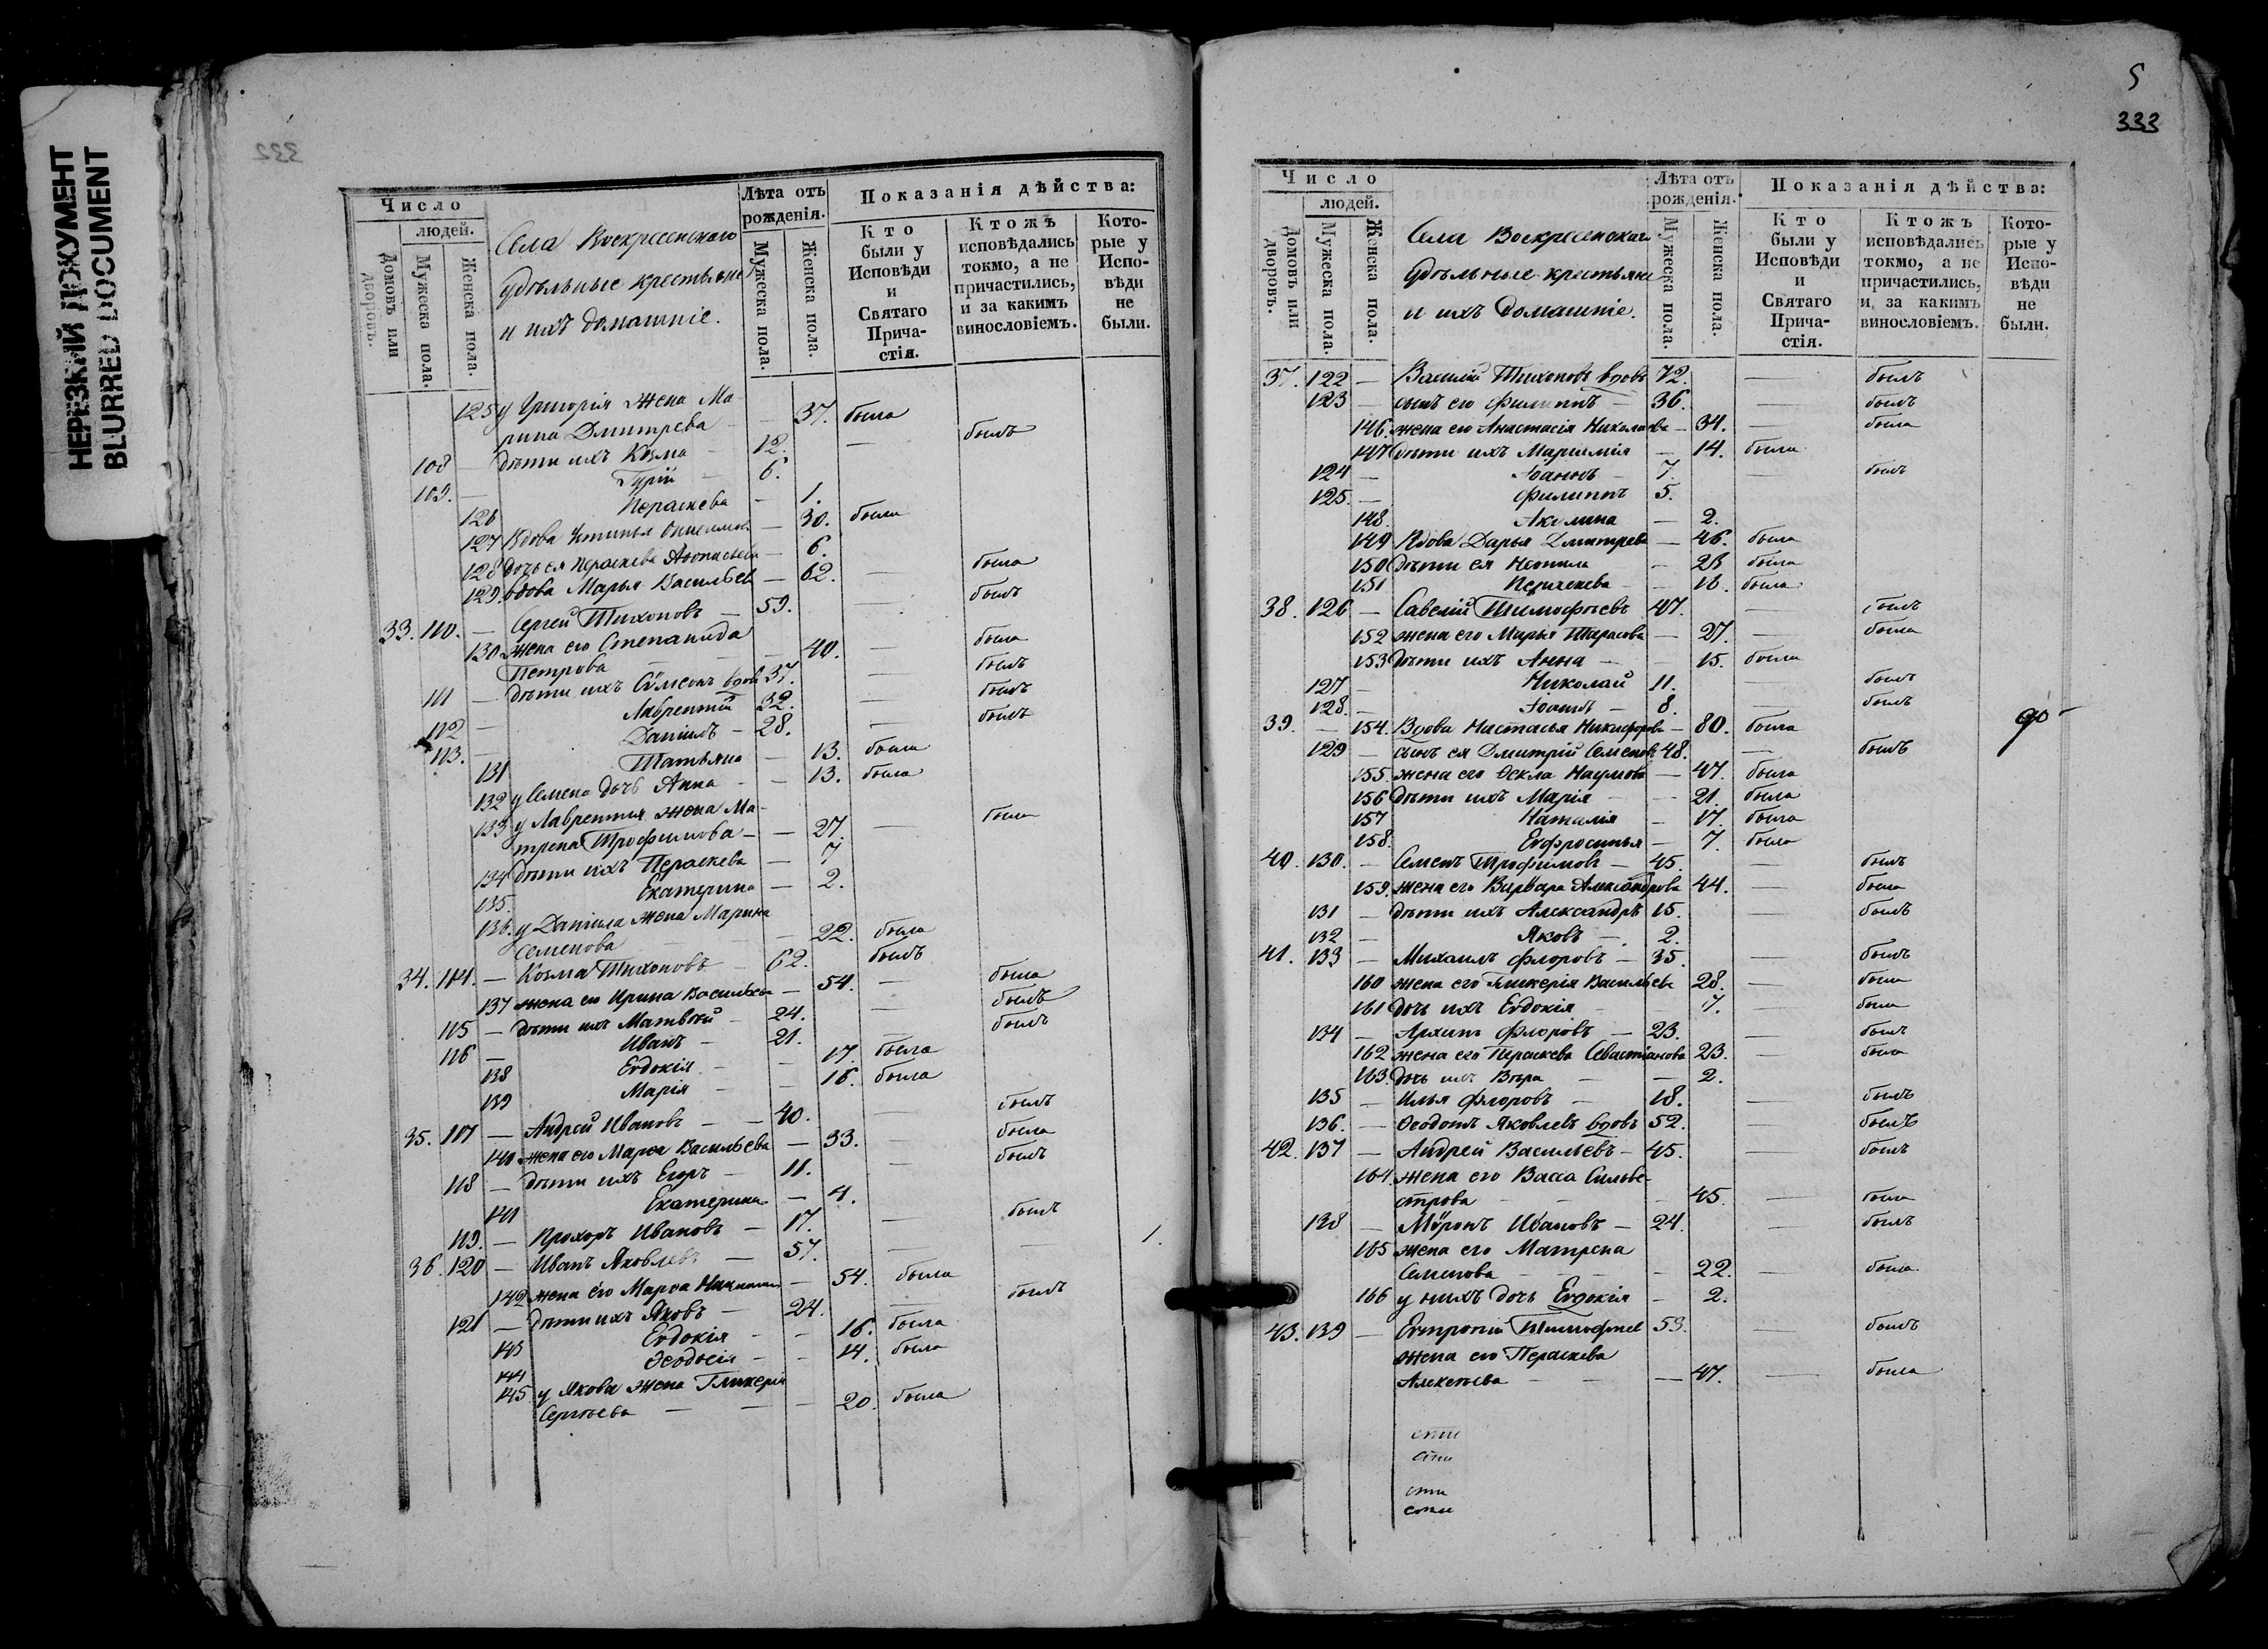 НЕРЕЗКИЙ ДОКУМЕНТ
BLURRED DOCUMENT
332
Число
людей.
Домовъ или дворовъ.
Мужеска пола.
Женска пола.
Села Воскресенскаго
удѣльные крестьяне
и ихъ домашніе.
Лѣта отъ рожденія.
Мужеска пола.
Женска пола.
Показанія дѣйства:
Кто были у Исповѣди и Святаго Причастія.
Ктожъ исповѣдались токмо, а не причастились, и за какимъ винословіемъ.
Которые у Исповѣди не были.
125 у Григорія жена Ма-
рина Дмитрева — 37. была
108 — дѣти ихъ Козма — 12. — былъ
109. — Гурій — 6.
126 Пераскева — 1.
127 Вдова Устинья — 30. была
128 дочь ея Пераскева — 6.
129. вдова Марья Васильев — 62. — была
33. 110. — Сергей Тихоновъ — 59. — былъ
130 жена его Степанида
Петрова — 40. — была
111 — дѣти ихъ Сѵмеонъ вдовъ 37. — былъ
112 — Лаврентій 32. — былъ
113. — Даніилъ — 28. — былъ
131 Татьяна — 13. была
132 у Семена дочь Анна — 13. была
133 у Лаврентия жена Ма-
трена Трофимова — 27. — была
134 дѣти ихъ Пераскева — 7
135. Екатерина — 2.
136. у Даніила жена Марина
Семенова — 22. была
34. 114. — Козма Тихоновъ — 62. былъ
137 жена его Ирина Васильева — 54. — была
115 — дѣти ихъ Матвѣй — 24. — былъ
116 — Иванъ — 21. — былъ
138 Евдокія — 17. была
139 Марія — 16. была
35. 117 — Андрей Ивановъ — 40. — былъ
140 жена его Марѳа Васильева — 33. — была
118 — дѣти ихъ Егоръ — 11. — былъ
141 Екатерина — 4.
119. — Прохоръ Ивановъ — 17. — былъ
36. 120 — Иванъ Яковлевъ — 57. — — 1.
142 жена его Марѳа — 54. была
121 — дѣти ихъ Яковъ — 24. — былъ
143 Евдокія — 16. была
144 Ѳеодосія — 14. была
145 у Якова жена Гликерія
Сергѣева — 20. была
5
333
Число
людей.
Домовъ или дворовъ.
Мужеска пола.
Женска пола.
Села Воскресенскаго
удѣльные крестьяне
и ихъ домашніе.
Лѣта отъ рожденія.
Мужеска пола.
Женска пола.
Показанія дѣйства:
Кто были у Исповѣди и Святаго Причастія.
Ктожъ исповѣдались токмо, а не причастились, и за какимъ винословіемъ.
Которые у Исповѣди не были.
37. 122 — Василій Тихоновъ вдовъ 72. — былъ
123 — сынъ его Филиппъ — 36. — былъ
146. жена его Анастасія Николаева — 34. — была
147 дѣти ихъ Маріамія — 14. была
124 — Іоаннъ — 7. — былъ
125. — Филиппъ 5.
148. Акелина — 2.
149 Вдова Дарья Дмитрева — 46. была
150 дѣти ея Неонила — 23 была
151 Пераскева — 16. была
38. 126 — Савелій Тимофѣевъ 47. — былъ
152 жена его Марья Тарасова — 27. — была
153 дѣти ихъ Анна — 15. была
127 — Николай 11. — былъ
128. — Іоаннъ — 8. — былъ
39. — 154. Вдова Настасья Никифорова — 80. была
129 — сынъ ея Дмитрій Семеновъ 48. — былъ
155. жена его Ѳекла Наумова — 47. была
156 дѣти ихъ Марія — 21. была
157 Наталія — 17. была
158. Евфросинья — 7. была
40. 130. — Семенъ Трофимовъ — 45. — былъ
159. жена его Варвара Александрова 44. — была
131 — дѣти ихъ Александръ 15. — былъ
132 — Яковъ — 2.
41. 133 — Михаилъ Флоровъ — 35. — былъ
160 жена его Гликерія Васильева 28. — была
161 дочь ихъ Евдокія — 7. — была
134 — Архипъ Флоровъ — 23. — былъ
162 жена его Пераскева Севастіанова 23. — была
163. дочь ихъ Вѣра — 2.
135 — Илья Флоровъ — 18. — былъ
136. — Ѳеодотъ Яковлевъ вдовъ 52. — былъ
42. 137 — Андрей Васильевъ — 45. — былъ
164. жена его Васса Сильве-
строва — 45. — была
138 — Мѵронъ Ивановъ — 24. — былъ
165 жена его Матрена
Семенова — 22. — была
166 у нихъ дочь Евдокія — 2.
43. 139 — Евтропій Тимофѣев 53. — былъ
жена его Пераскева
Алексѣева — 47. — была